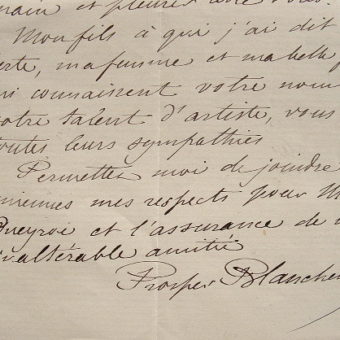 et pleurer avec vous.
Mon fils à qui j'ai dit
perte, ma femme et ma belle f
qui connaissent votre nom
votre talent d'artiste, vous
toutes leurs sympathies
Permettez moi de joindre
miennes mes respects pour M
et l'assurance de
inaltérable amitié
Prosper Blanche